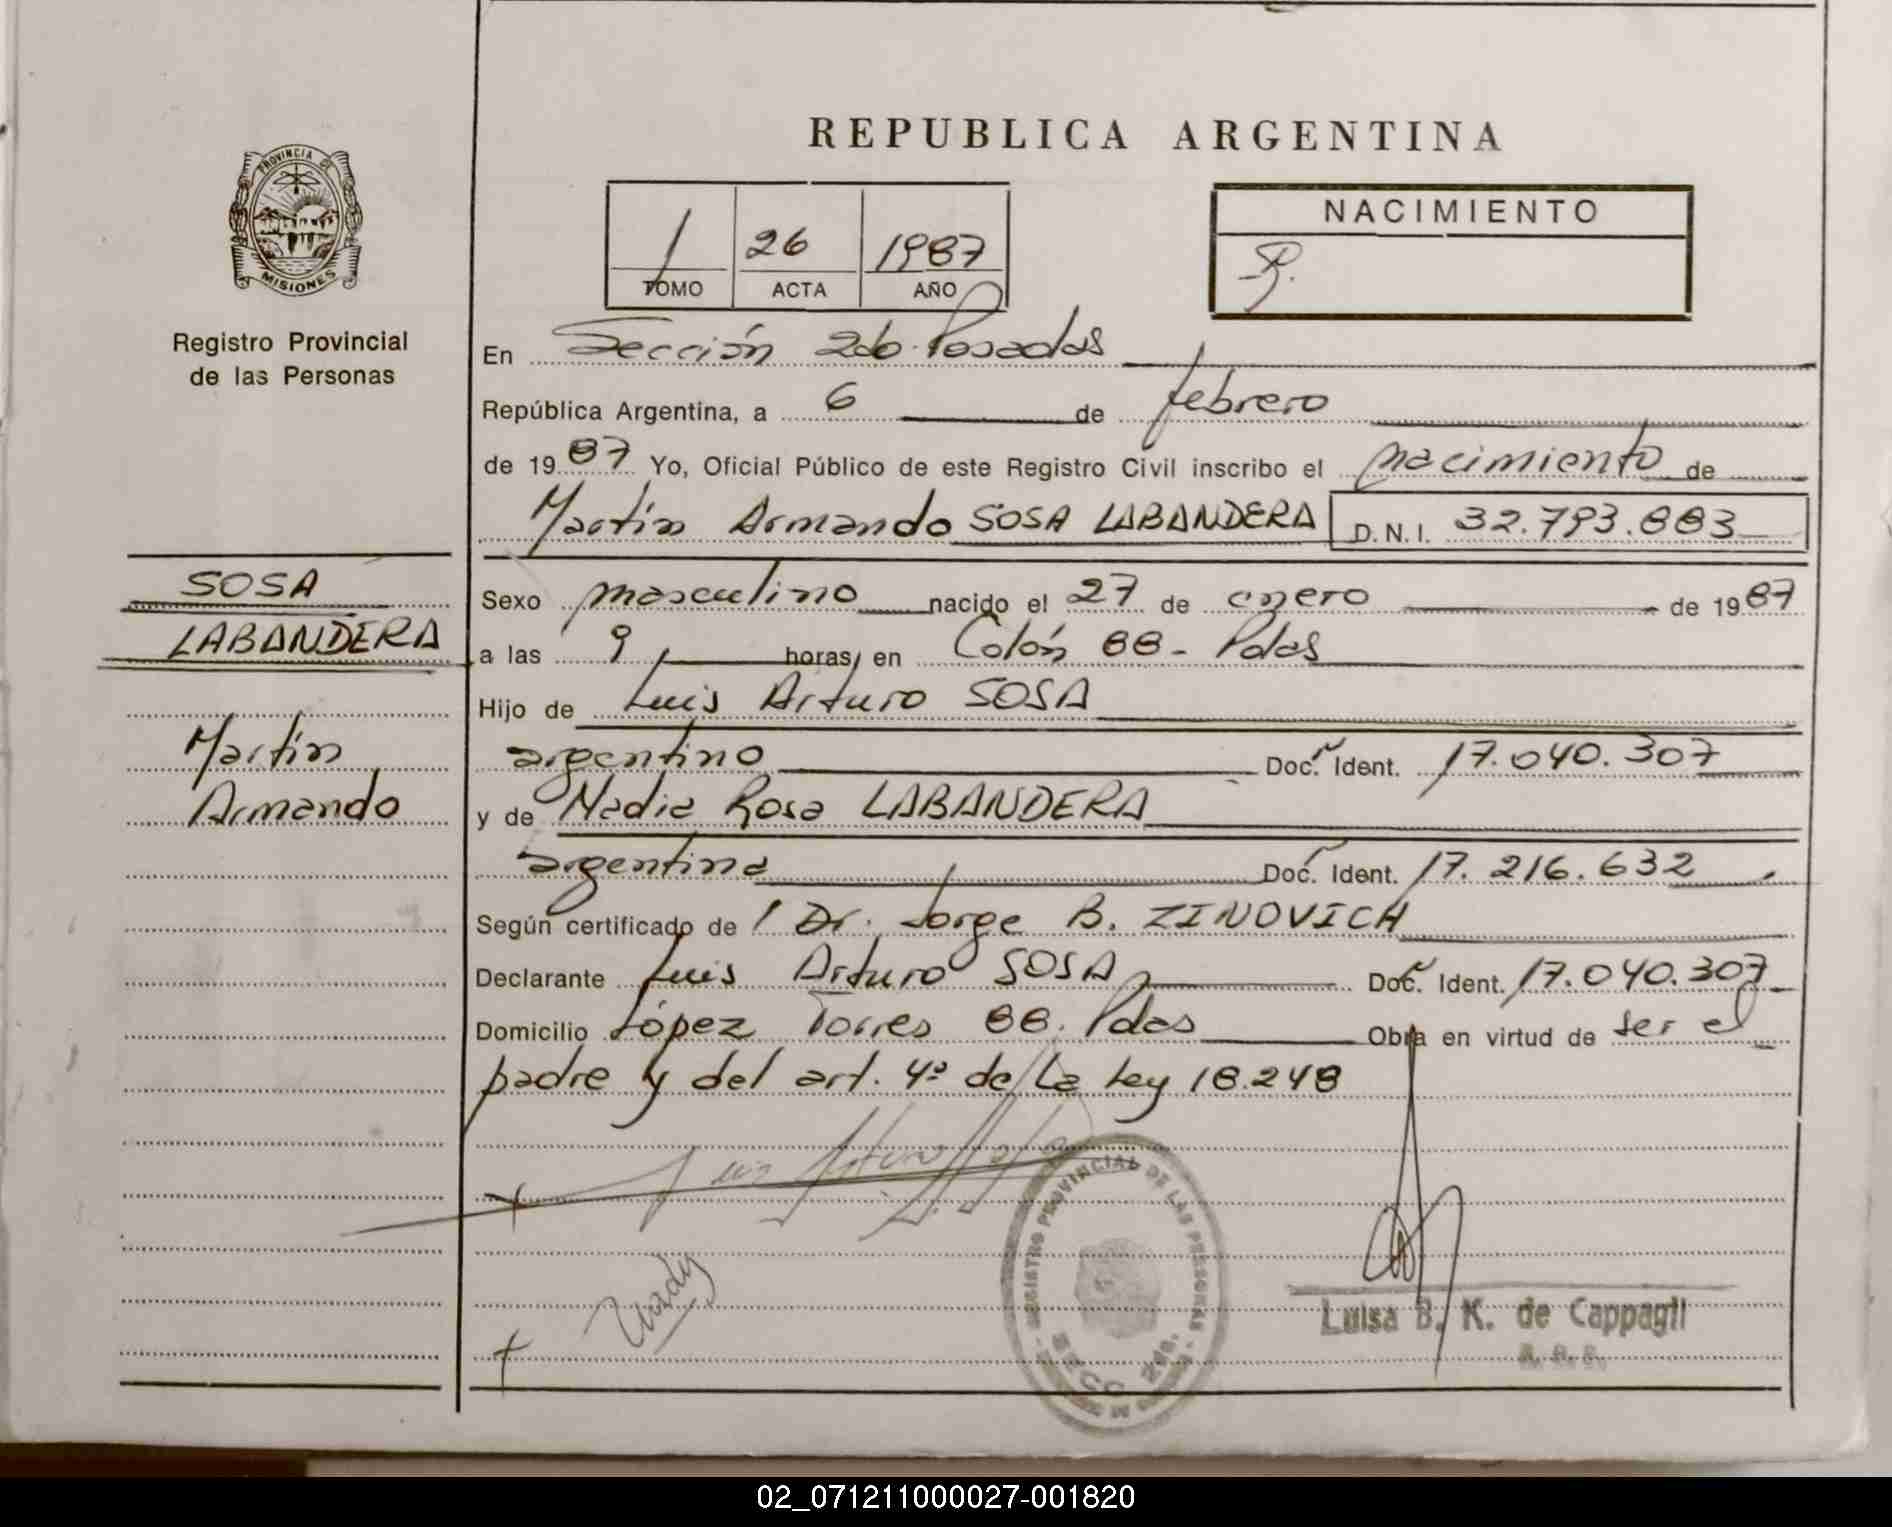 REPUBLICA ARGENTINA
PROVINCIA DE
MISIONES
Registro Provincial
de las Personas
1 26 1987
TOMO ACTA AÑO
NACIMIENTO
En Sección 2da. Posadas
República Argentina, a 6 de febrero
de 1987 Yo, Oficial Público de este Registro Civil inscribo el nacimiento de
Martín Armando SOSA LABANDERA D.N.I. 32.793.883
SOSA
LABANDERA
Martín
Armando
Sexo masculino nacido el 27 de enero de 1987
a las 9 horas, en Colón 88 - Pdas
Hijo de Luis Arturo SOSA
argentino Doc. Ident. 17.040.307
y de Nadia Rosa LABANDERA
argentina Doc. Ident. 17.216.632
Según certificado de 1 Dr. Jorge B. ZINOVICH
Declarante Luis Arturo SOSA Doc. Ident. 17.040.307
Domicilio López Torres 88. Pdas Obra en virtud de ser el
padre y del art. 4º de la Ley 18.248
REGISTRO PROVINCIAL DE LAS PERSONAS
SECC. 2da.
Luisa B. K. de Cappagli
02_071211000027-001820